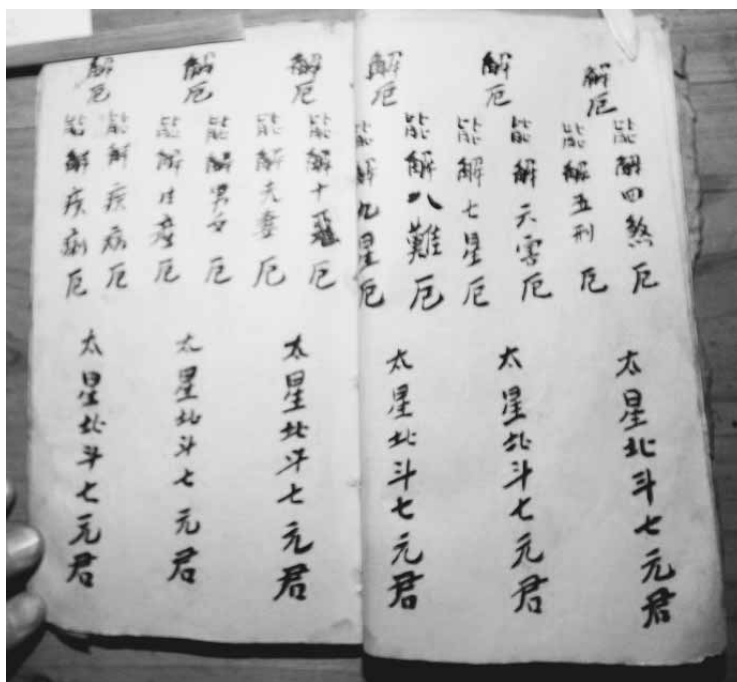 解厄
能解四煞厄
能解五刑厄
太星北斗七元君
解厄
能解六害厄
能解七星厄
太星北斗七元君
解厄
能解八難厄
能解九星厄
太星北斗七元君
解厄
能解十厄
能解夫妻厄
太星北斗七元君
解厄
能解男女厄
能解生產厄
太星北斗七元君
解厄
能解疾病厄
能解痢厄
太星北斗七元君